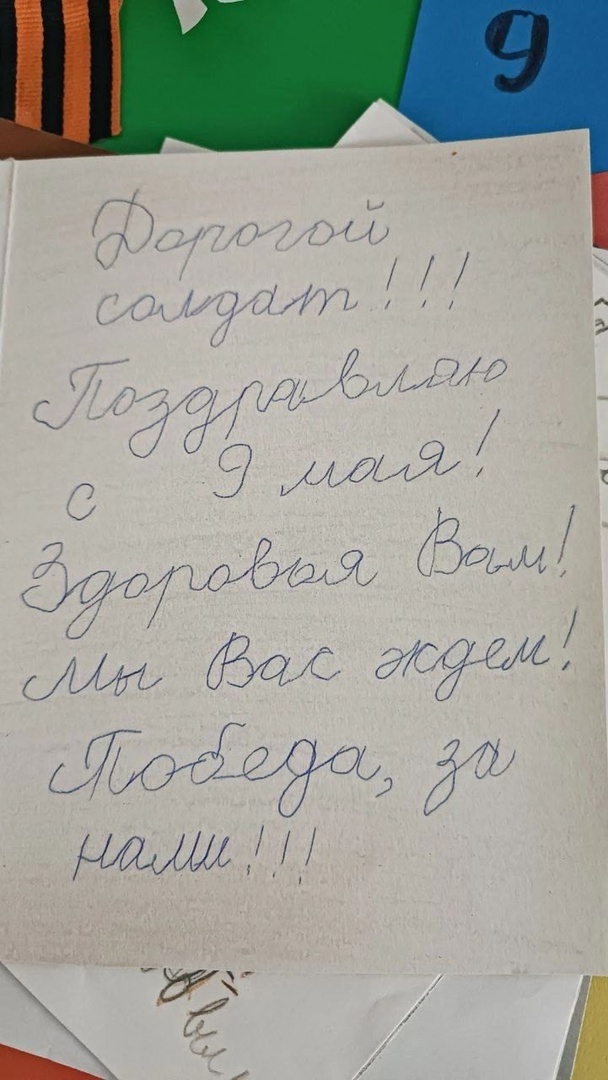 9
Дорогой
солдат!!!
Поздравляю
с 9 мая!
Здоровья Вам!
Мы Вас ждем!
Победа, за
нами!!!